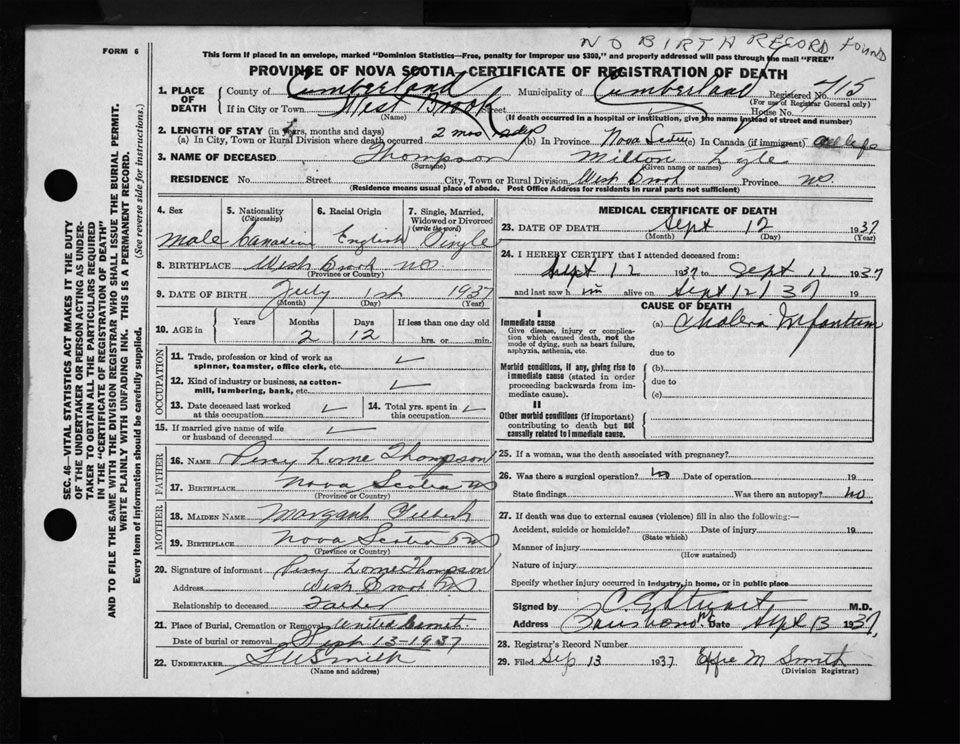 NO BIRTH RECORD FOUND
FORM 6
This form if placed in an envelope, marked "Dominion Statistics—Free, penalty for improper use $300," and properly addressed will pass through the mail "FREE"
PROVINCE OF NOVA SCOTIA—CERTIFICATE OF REGISTRATION OF DEATH
1. PLACE OF DEATH County of Cumberland Municipality of Cumberland Registered No. 715
(For use of Registrar General only)
If in City or Town West Brook Street House No.
(Name) (If death occurred in a hospital or institution, give the name instead of street and number)
2. LENGTH OF STAY (in years, months and days)
(a) In City, Town or Rural Division where death occurred 2 mos (b) In Province Nova Scotia (c) In Canada (if immigrant) all life
3. NAME OF DECEASED Thompson Milton Lyle
(Surname) (Given name or names)
RESIDENCE No. Street City, Town or Rural Division West Brook Province NS
(Residence means usual place of abode. Post Office Address for Residents in rural parts not sufficient)
4. Sex Male
5. Nationality (Citizenship) Canadian
6. Racial Origin English
7. Single, Married, Widowed or Divorced (write the word) Single
8. BIRTHPLACE West Brook NS
(Province or Country)
9. DATE OF BIRTH July 1st 1937
(Month) (Day) (Year)
10. AGE in Years Months 2 Days 12 If less than one day old hrs. or min.
OCCUPATION
11. Trade, profession or kind of work as spinner, teamster, office clerk, etc. ✓
12. Kind of industry or business, as cotton-mill, lumbering, bank, etc. ✓
13. Date deceased last worked at this occupation ✓
14. Total yrs. spent in this occupation ✓
15. If married give name of wife or husband of deceased ✓
FATHER
16. NAME Percy Lorne Thompson
17. BIRTHPLACE Nova Scotia NS
(Province or Country)
MOTHER
18. MAIDEN NAME Margaret
19. BIRTHPLACE Nova Scotia NS
(Province or Country)
20. Signature of informant Percy Lorne Thompson
Address West Brook NS
Relationship to deceased Father
21. Place of Burial, Cremation or Removal United Cemet
Date of burial or removal Sept 13-1937
22. UNDERTAKER Smith
(Name and address)
MEDICAL CERTIFICATE OF DEATH
23. DATE OF DEATH Sept 12 1937
(Month) (Day) (Year)
24. I HEREBY CERTIFY that I attended deceased from:
Sept 12 1937 to Sept 12 1937
and last saw h im alive on Sept 12/37 19
CAUSE OF DEATH
I
Immediate cause
Give disease, injury or complication which caused death, not the mode of dying, such as heart failure, asphyxia, asthenia, etc.
(a) Cholera Infantum
due to
Morbid conditions, if any, giving rise to immediate cause (stated in order proceeding backwards from immediate cause).
(b)
due to
(c)
II
Other morbid conditions (if important) contributing to death but not causally related to immediate cause.
25. If a woman, was the death associated with pregnancy?
26. Was there a surgical operation? no Date of operation 19
State findings Was there an autopsy? no.
27. If death was due to external causes (violence) fill in also the following:—
Accident, suicide or homicide? Date of injury 19
(State which)
Manner of injury
(How sustained)
Nature of injury
Specify whether injury occurred in industry, in home, or in public place
Signed by C. E. Stuart M.D.
Address Parrsboro NS Date Sept 13 1937
28. Registrar's Record Number
29. Filed Sep 13 1937 Effie M Smith
(Division Registrar)
SEC. 46—VITAL STATISTICS ACT MAKES IT THE DUTY
OF THE UNDERTAKER OR PERSON ACTING AS UNDER-
TAKER TO OBTAIN ALL THE PARTICULARS REQUIRED
IN THE "CERTIFICATE OF REGISTRATION OF DEATH"
AND TO FILE THE SAME WITH THE DIVISION REGISTRAR WHO SHALL ISSUE THE BURIAL PERMIT.
WRITE PLAINLY WITH UNFADING INK. THIS IS A PERMANENT RECORD.
Every item of information should be carefully supplied. (See reverse side for instructions.)